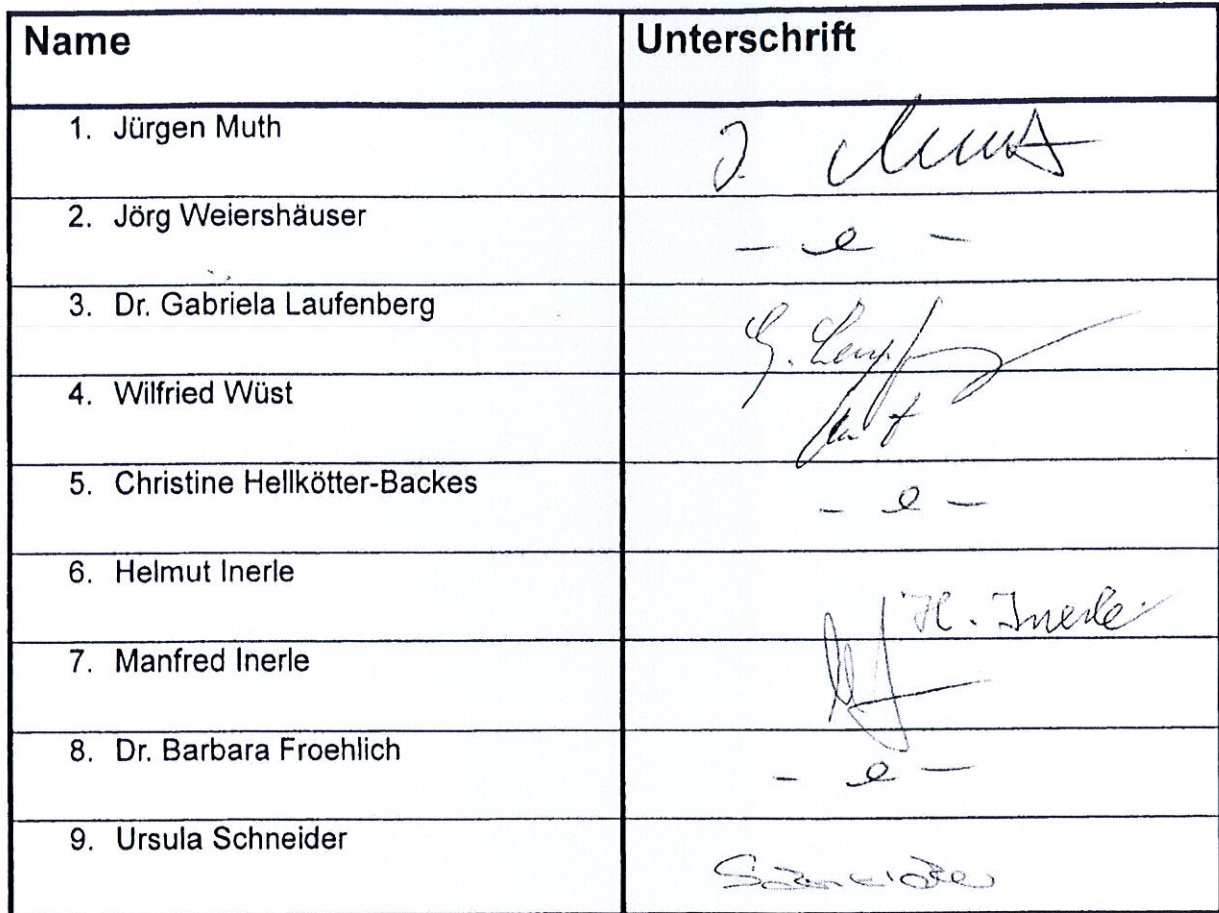 Name Unterschrift
1. Jürgen Muth J. Muth
2. Jörg Weiershäuser - e -
3. Dr. Gabriela Laufenberg G.
4. Wilfried Wüst
5. Christine Hellkötter-Backes - e -
6. Helmut Inerle H. Inerle
7. Manfred Inerle
8. Dr. Barbara Froehlich - e -
9. Ursula Schneider Schneider